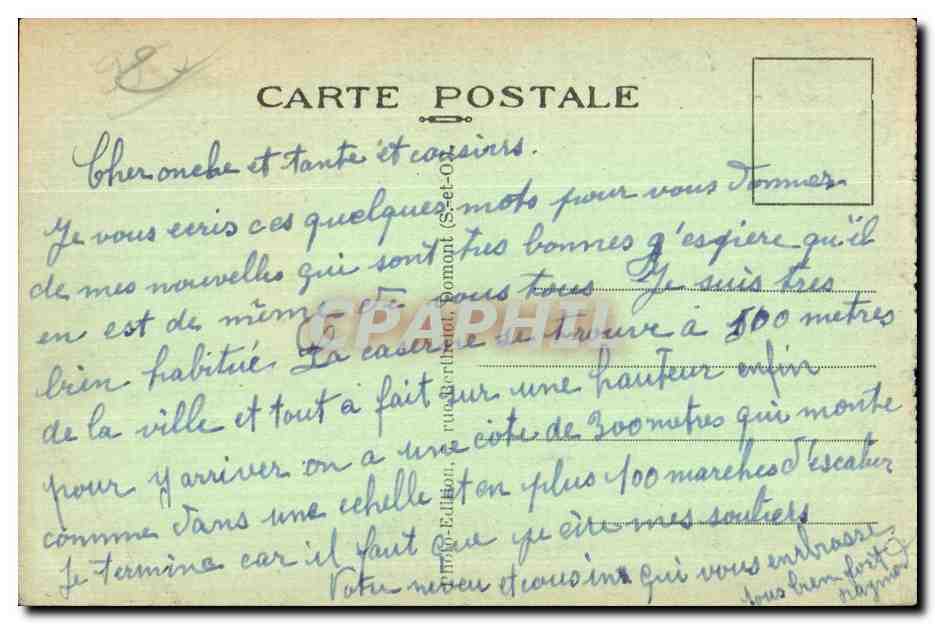 CARTE POSTALE
Cher oncle et tante et cousins.
Je vous ecris ces quelques mots pour vous donner
de mes nouvelles qui sont tres bonnes j'espere qu'il
en est de même de vous tous Je suis tres
bien habitué La caserne se trouve à 500 metres
de la ville et tout a fait sur une hauteur enfin
pour y arriver on a une côte de 300 metres qui monte
comme dans une echelle et en plus 100 marches d'escalier
Je termine car il faut que je cire mes souliers
Votre neveu et cousin qui vous embrasse
tous bien fort
Photo-Edition, rue Berthelot, Domont (S.-et-O.)
CPAPHIL